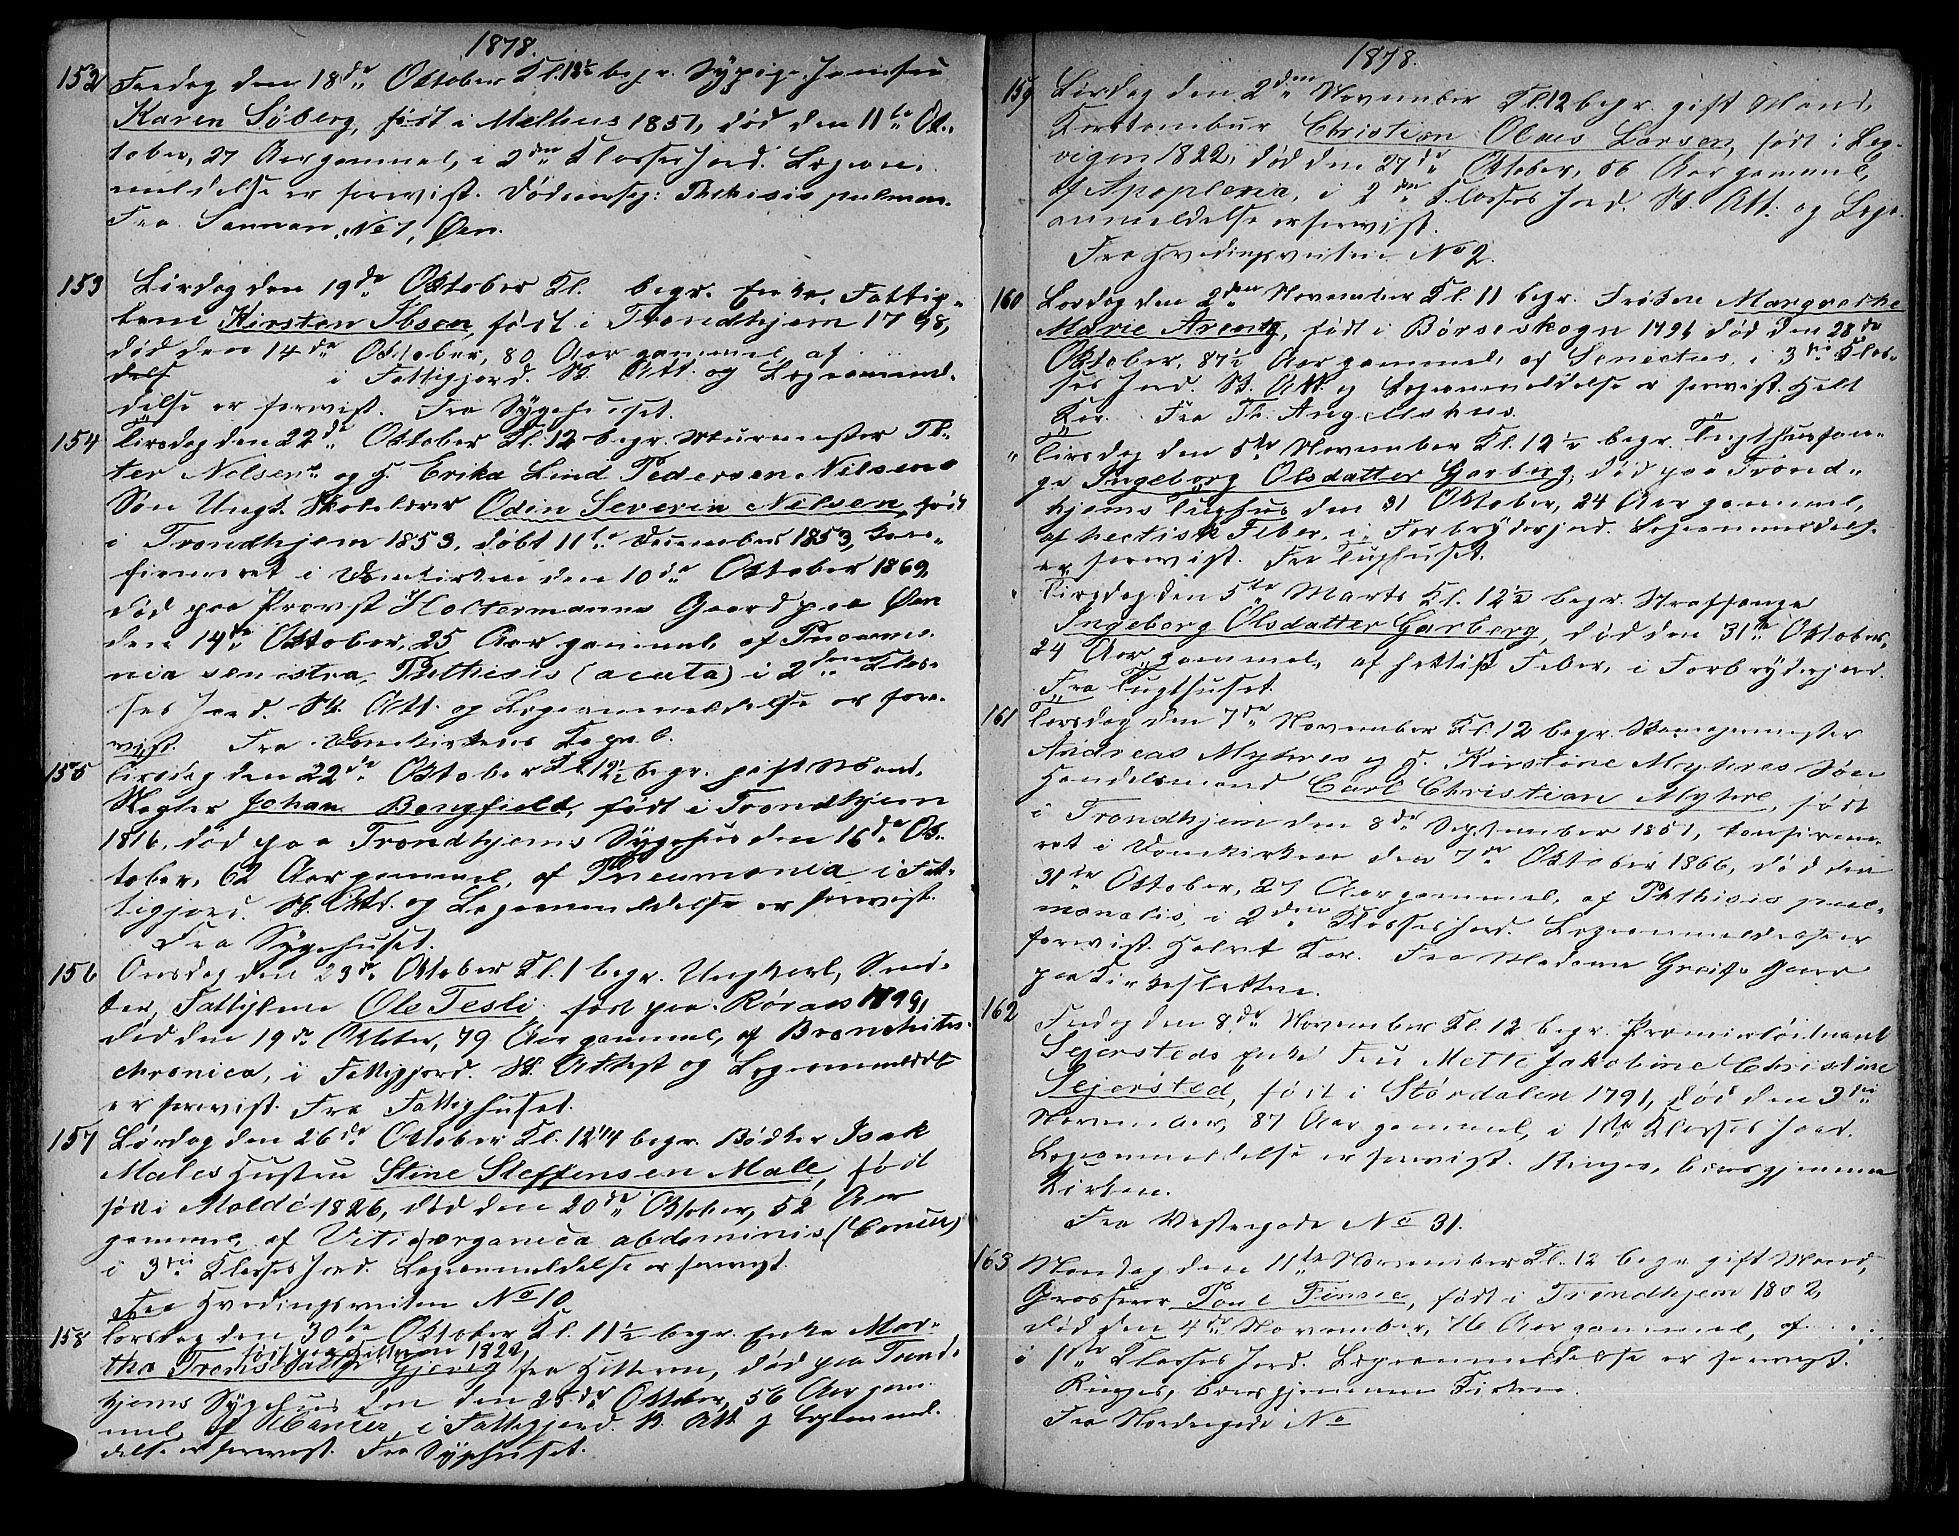 1878.
152 Fredag den 18de Oktober Kl. 12½ begr. Sypige, Jomfru
Karen Söberg, født i Melhus 1851, død den 11te Ok-
tober, 27 Aar gammel, i 2den Klasses Jord. Lægean-
meldelse er forevist. Dødsaarsag: Phthisis pulmon.
Fra Sannan, No 1, Øen.
153 Lördag den 19de Oktober Kl. begr. Enke, Fattig-
lem Kirsten Ibsen, født i Trondhjem 1798,
död den 14de Oktober, 80 Aar gammel, af
delse i Fattigjord. Sk. Att. og Lægeanmel-
delse er forevist. Fra Sygehuset.
154 Tirsdag den 22de Oktober Kl. 12 begr. Murmester Pe-
ter Nelsens og H. Erika Lind Pedersen Nilsens
Søn Ungk. Skolelærer Odin Severin Nilsen, født
i Trondhjem 1853, døbt 11te December 1853, kon-
firmeret i Domkirken den 10de Oktober 1869,
död paa Provst Holtermanns Gaard paa Øen
den 14de Oktober, 25 Aar gammel af Pneumo-
nia senistra, Phthisis (acuta) i 2den Klas-
ses Jord. Sk. Att. og Lægeanmeldelse er fore-
vist. Fra Domkirkens Kapel.
155 Tirsdag den 22de Oktober Kl. 12½ begr. gift Mand,
Slagter Johan Bengfield, født i Trondhjem
1816, død paa Trondhjems Sygehus den 16de Ok-
tober, 62 Aar gammel, af Pneumonia i Fat-
tigjord. Sk. Att. og Lægeanmeldelse er forevist.
Fra Sygehuset.
156 Onsdag den 23de Oktober Kl. 1 begr. Ungkarl, Smed-
Fattiglem Ole Tesli, født paa Röraas 1799,
död den 19de Oktober, 79 Aar gammel, af Bronchites
chronica, i Fattigjord. Sk. Attest og Lægeanmeldelse
er forevist. Fra Fattighuset.
157 Lørdag den 26de Oktober Kl. 12 1/4 begr. Bødker Isak
Males Hustru Stine Steffensen Male, født
født i Molde 1826, død den 20de Oktober, 52 Aar
gammel, af Vitia organica abdominis (Cancer)
i 3die Klasses Jord. Lægeanmeldelse er forevist.
Fra Hvedingsveiten No 10
158 Torsdag den 30te Oktober Kl. 11½ begr. Enke Mar-
født paa Hitteren 1822,
tha Gjevig fra Hitteren, død paa Trond-
hjems Sygehus den den 25de Oktober, 56 Aar gam-
mel, af Cancer, i Fattigjord. Sk. Att. og Lægeanmel-
delse er forevist. Fra Sygehuset.
1878.
159 Lørdag den 2den November Kl. 12 begr. gift Mand,
Christian Olaus Larsen, født i Lex-
vigen 1822, død den 27de Oktober, 56 Aar gammel,
af Apoplexia, i 2den Klasses Jord. Sk. Att. og Læge-
anmeldelse er forevist.
Fra Hvedingsveiten No 2.
160 Lørdag den 2den November Kl. 11 begr. Frøken Margrethe
Marie Arentz, født i Börseskogn 1791, død den 28de
Oktober, 87½ Aar gammel, af Senectus, i 3die Klas-
ses Jord. Sk. Att. og Lægeanmeldelse er forevist. Helt
Kor. Fra Th. Ang.
" Tirsdag den 5te November Kl. 12½ begr. Tugthusfan-
ge Ingeborg Olsdatter Garberg, død paa Trond-
hjems Tugthus den 31 Oktober, 24 Aar gammel,
af hectisk Feber, i Forbryderjord. Lægeanmeldelse
er forevist. Fra Tugthuset.
Tirsdag den 5te Marts Kl. 12½ begr. Straffange
Ingeborg Olsdatter Garberg, död den 31te Oktober,
24 Aar gammel, af hektisk Feber, i Forbryderjord.
Fra Tugthuset.
161 Torsdag den 7de November Kl. 12 begr. Skomagermester
Andreas Myhres og H. Kirstine Myhres Søn
Handelsmand Carl Christian Myhre, født
i Trondhjem den 8de September 1851, konfirme-
ret i Domkirken den 7de Oktober 1866, död den
31te Oktober, 27 Aar gammel, af Phthisis pul-
monalis, i 2den Klasses Jord. Lægeanmeldelse er
forevist. Halvt Kor. Fra Madame Gaard
paa Kirkesletten.
162 Fredag den 8de November Kl. 12 begr. Premierløitnant
Sejersteds Enke Fru Mette Jakobine Christine
Sejersted, født i Stördalen 1791, död den 3die
November, 87 Aar gammel, i 1ste Klasses Jord.
Lægeanmeldelse er forevist. Ringes, baaren gjennem
Kirken.
Fra Vestergade No 31.
163 Mandag den 11te November Kl. 12 begr. gift Mand,
Grosserer Poul Finsie, født i Trondhjem 1802,
död den 4de November, 76 Aar gammel, af
i 1ste Klasses Jord. Lægeanmeldelse er forevist.
Ringes, baaren gjennem Kirken.
Fra Nordregade No